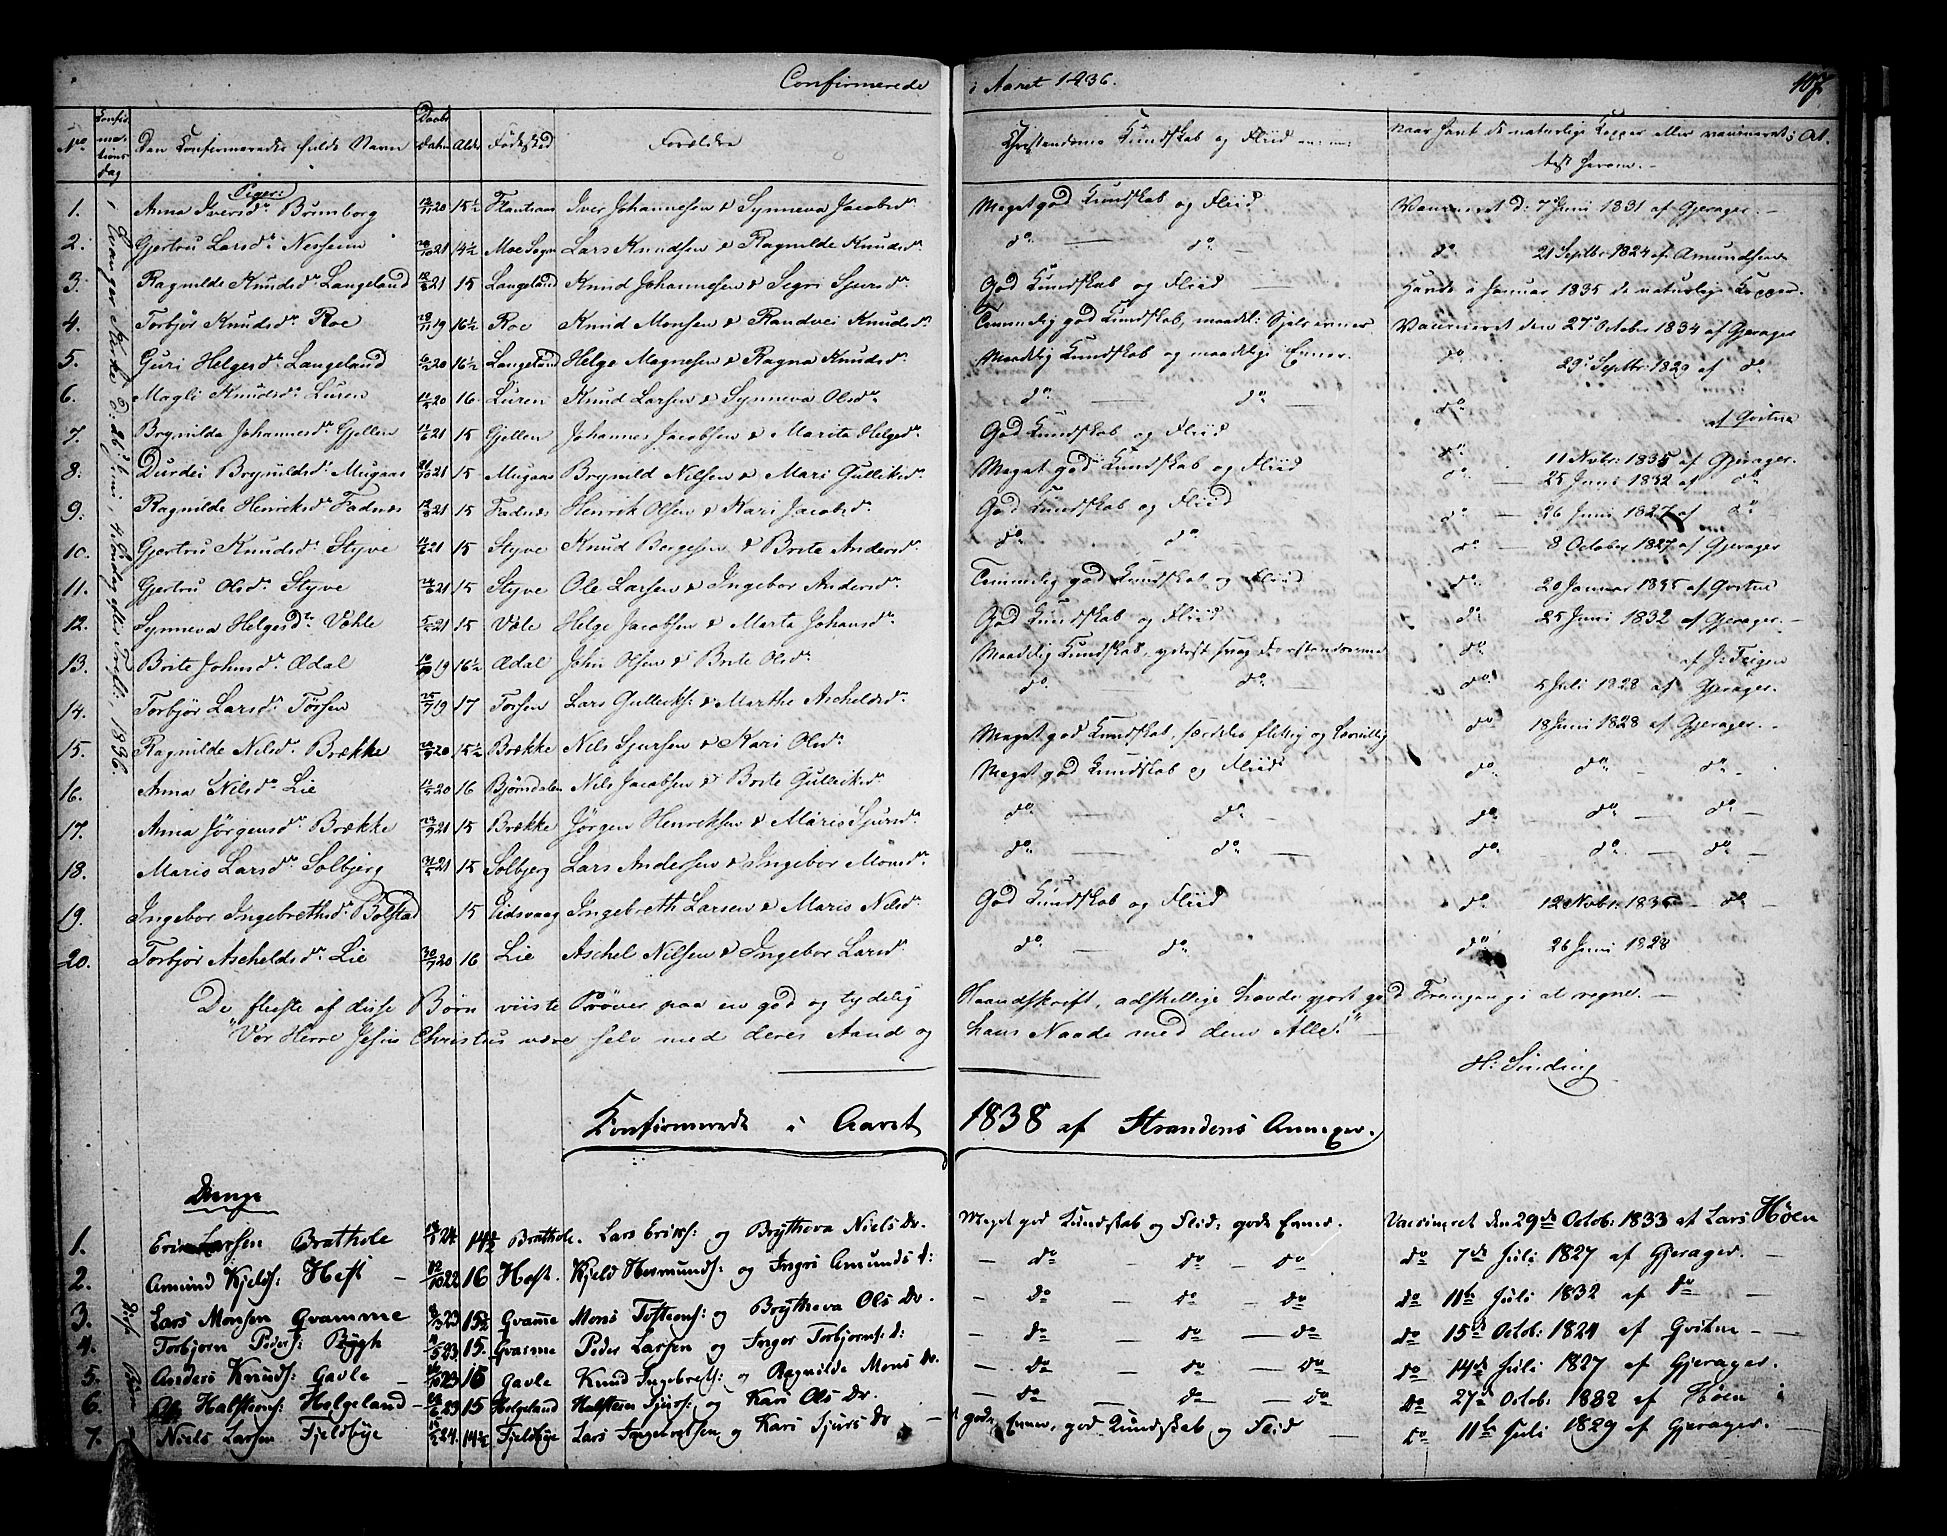 Confirmerede i Aaret 1836. 107.
No Confirmationsdag Den Confirmeredes fulde Navn Daabsdatum Alder Fødested Forældre Christendoms Kundskab og Fliid naar havt de naturlige Kopper eller vaccineret; At-
test herom.
Piger:
1. Anna Iversdr. Brumborg 20 15½ Flantraas Iver Johannesen & Synneva Jacobsdr Meget god Kundskab og Fliid Vaccineret d: 7 Juni 1831 af Gjerager. -
2. Gjertru Larsdr Nesheim 21 14½ Moe Sogn Lars Knudsen & Ragnilde Knudsdr do - do - do 21 Septbr 1824 af Amundsen
3. Ragnilde Knudsdr Langeland 21 15 Langeland Knud Johannesen & Segri Sjursdr God Kundskab og Fliid - Havde i Januar 1835 de naturlige Kopper.
4. Torbjør Knudsdr Roe 19 16½ Roe Knud Monsen & Randvei Knudsdr Temmelig god Kundskab, maadel: Sjels evner Vaccineret den 27 October 1834 af Gjerager
5. Guri Helgesdr Langeland 20 16½ Langeland Helge Magnesen & Ragna Knudsdr. Maadelig Kundskab og maadelige Evner. do 29 Septbr: 1829 af do
6. Magli Knudsdr Luren 20 16. Luren Knud Larsen & Synneva Olsdr do - do - do af Qvitne
7. Brynilda Johannesdr Gjellen 21 15 Gjellen Johannes Jacobsen & Marita Helgedr God Kundskab og Fliid do 11 Novbr: 1835 af Gjerager.
8. Durdei Brynildsdr Mugaas 21 15 Mugaas Brynild Nilsen & Mari Gulliksdr Meget god Kundskab og Fliid do - 25 Juni 1832 af do
9. Ragnilde Henriksdr Fadnes 21 15 Fadnes Henrik Olsen & Kari Jacobsdr God Kundskab og Fliid do - 26 Juni 1827 af do
10. Gjertru Knudsdr Styve 21 15 Styve Knud Børgesen & Brite Andersdr do do - do - 8 October 1827 af Gjerager
11. Gjertru Olsdr. Styve 21 15 Styve Ole Larsen & Ingebor Andersdr Temmelig god Kundskab og Fliid do 20 Januar 1835 af Qvitne
12. Synneva Helgesdr Væhle 21 15 Væle Helge Jacobsen & Marta Johansdr God Kundskab og Fliid do 25 Juni 1832 af Gjerager. -
13. Brite Johnsdr. Ædal 19 16½ Ædal John Olsen & Brite Olsdr Maadelig Kundskab, yderst svag Forstandsevne do af J: Teigen
14. Torbjør Larsdr. Tørsen 19 17 Tørsen Lars Gulleiks: & Marthe Ascheldsdr do - do - do 5 Juli 1828 af Gjerager.
15. Ragnilde Nilsdr. Brække 20 15½ Brække Nils Sjursen & Kari Olsdr Meget god Kundskab, særdeles flittig og lærvillig do 18 Juni 1828 af Gjerager. -
16. Anna Nilsdr Lie 20 16 Bjørndalen Nils Jacobsen & Brite Gulliksdr Meget god Kundskab og Fliid do do - do -
17. Anna Jørgensdr Brække 21 15 Brække Jørgen Henriksen & Maris Sjursdr do - do - do do - do -
18. Maris Larsdr Solbjerg 21 15 Solbjerg Lars Andersen & Ingebor Monsdr do - do - do do - do -
19. Ingebor Ingebrethsdr Bolstad 15 Eidsvaag Ingebreth Larsen & Maris Nilsdr God Kundskab og Fliid do 12 Novbr: 1835 - do -
20. Torbjør Ascheldsdr Lie 20 16 Lie Aschel Nilsen & Ingebor Larsdr do - do do 26 Juni 1828
i Evanger Kirke d: 26 Juni, 4 Søndag efter Trefoll: 1836.
De fleste af disse Børn viiste Prøver paa en god og tydelig Haandskrift, adskillige havde gjort god Fremgang i at regne. -
"Vor Herre Jesus Christus være selv med deres Aand og hans Naade med dem Alle!" -
H: Sinding
Konfirmerede i Aaret 1838 af Strandens Annexer.
Drenge
1. Larsen Brathole 24 14½ Brathole. Lars Eriks: og Brytheva Niels Dr. Meget god Kundskab og Flid: gode Evner. Vaccineret den 29de Octob: 1833 af Lars Høen
2. Amund Kjelds: Heft - 22 16 Heft. Kjeld Hermunds: og Ingri Amunds d: - do - do - do do 7de Juli 1827 af Gjerager. -
3. Lars Monsen Qvamme 23 15½ Qvamme Mons Tostens: og Brytheva Ols Dr. - do - do - do do 11te Juli 1832 af do -
4. Torbjørn Peders: Bygh 23 15. Qvamme Peder Larsen og Inger Torbjørns: d: - do - do - do do 15de Octob: 1824 af Qvitne -
5. Anders Knuds: Gavle - 23 15 Gavle Knud Ingebrets: og Ragnilde Mons Dr - do - do - do do 14de Juli 1827 af Gjerager.
6. Halstens: Helgeland - 23 15 Helgeland Halsteen Sjurs: og Kari Ols Dr. - do - do - do do 27de Octob. 1832 af Høen
7. Niels Larsen Fjeldbye 24. 14½ Fjeldbye Lars Ingebretsen og Kari Sjurs Dr - gode Evner, god Kundskab og Flid - do 11te Juli 1829 af Gjerager. -